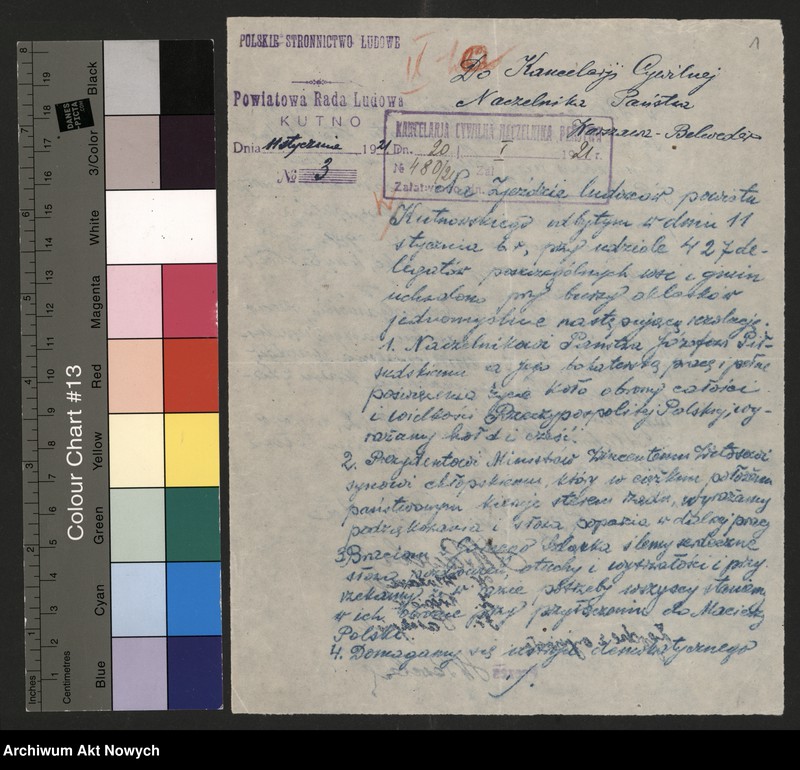 POLSKIE STRONNICTWO LUDOWE
Powiatowa Rada Ludowa
KUTNO
Dnia 11 stycznia 1921 r.
№ 3
1
Do Kancelarji Cywilnej
Naczelnika Państwa
Warszawa-Belweder
KANCELARJA CYWILNA NACZELNIKA PAŃSTWA
Dn. 20 I 1921 r.
№ 480/21 Zał.
Załatwiono dn.
Na Zjeździe ludowców powiatu
Kutnowskiego odbytym w dniu 11
stycznia b.r. przy udziale 427 de-
legatów poszczególnych wsi i gmin
uchwalono przy burzy oklasków
jednomyślnie następującą rezolucję.
1. Naczelnikowi Państwa Józefowi Pił-
sudskiemu za jego bohaterską pracę i pełne
poświęcenia życie koło obrony całości
i wielkości Rzeczypospolitej Polskiej wy-
rażamy hołd i cześć.
2. Prezydentowi Ministrów Wincentemu Witosowi
synowi chłopskiemu, który w ciężkim położeniu
państwowym kieruje sterem rządu, wyrażamy
podziękowania i słowa poparcia w dalszej pracy
3. Braciom Śląska ślemy serdeczne
słowa otuchy i wytrwałości i przy-
rzekamy gdzie potrzeby wszyscy staniem
w ich przy przyłączeniu do Macierzy
Polski.
4. Domagamy się demokratycznego
Colour Chart #13
DANES
PICTA
.COM
Black
3/Color
White
Magenta
Red
Yellow
Green
Cyan
Blue
Inches
Centimetres
1 2 3 4 5 6 7 8
1 2 3 4 5 6 7 8 9 10 11 12 13 14 15 16 17 18 19
Archiwum Akt Nowych